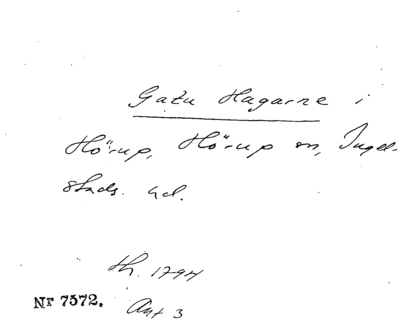 Gatu Hagarne i
Hörup, Hörup sn, Ingel-
stads. hd.
th. 1794
Nr 7572.
Ant 3